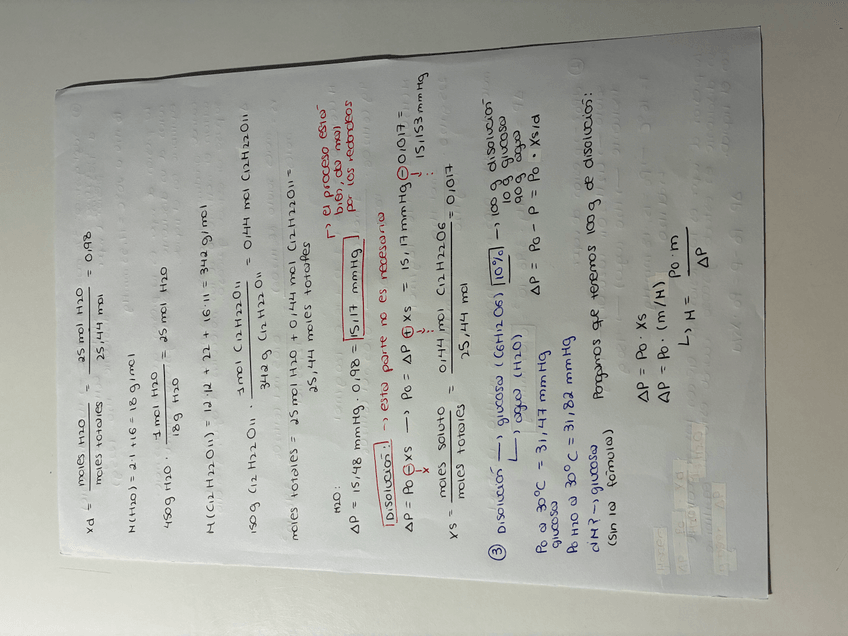 Xd = moles H2O / moles totales = 25 mol H2O / 25,44 mol = 0,98
M(H2O) = 2·1 + 16 = 18 g/mol
450g H2O · 1 mol H2O / 18g H2O = 25 mol H2O
M(C12H22O11) = 12·12 + 22 + 16·11 = 342 g/mol
150g C12H22O11 · 1mol C12H22O11 / 342 g C12H22O11 = 0,44 mol C12H22O11
moles totales = 25 mol H2O + 0,44 mol C12H22O11 =
25,44 moles totales
H2O:
ΔP = 15,48 mmHg · 0,98 = 15,17 mmHg
→ el proceso está
bien, da mal
por los redondeos
Disolución: → esta parte no es necesaria
ΔP = Po − Xs → Po = ΔP + Xs = 15,17 mmHg − 0,017 =
x
15,153 mmHg
Xs = moles soluto / moles totales = 0,44 mol C12H22O6 / 25,44 mol = 0,017
③ Disolución → glucosa (C6H12O6) 10% → 100 g disolución
↳ agua (H2O)
10 g glucosa
90 g agua
Po a 30°C = 31,47 mmHg
glucosa
ΔP = Po - P = Po · Xs/d
Po H2O a 30°C = 31,82 mmHg
¿M? → glucosa
(sin la fórmula)
Pongamos que tenemos 100g de disolución:
ΔP = Po · Xs
ΔP = Po · (m/M)
↳ M = Po · m / ΔP